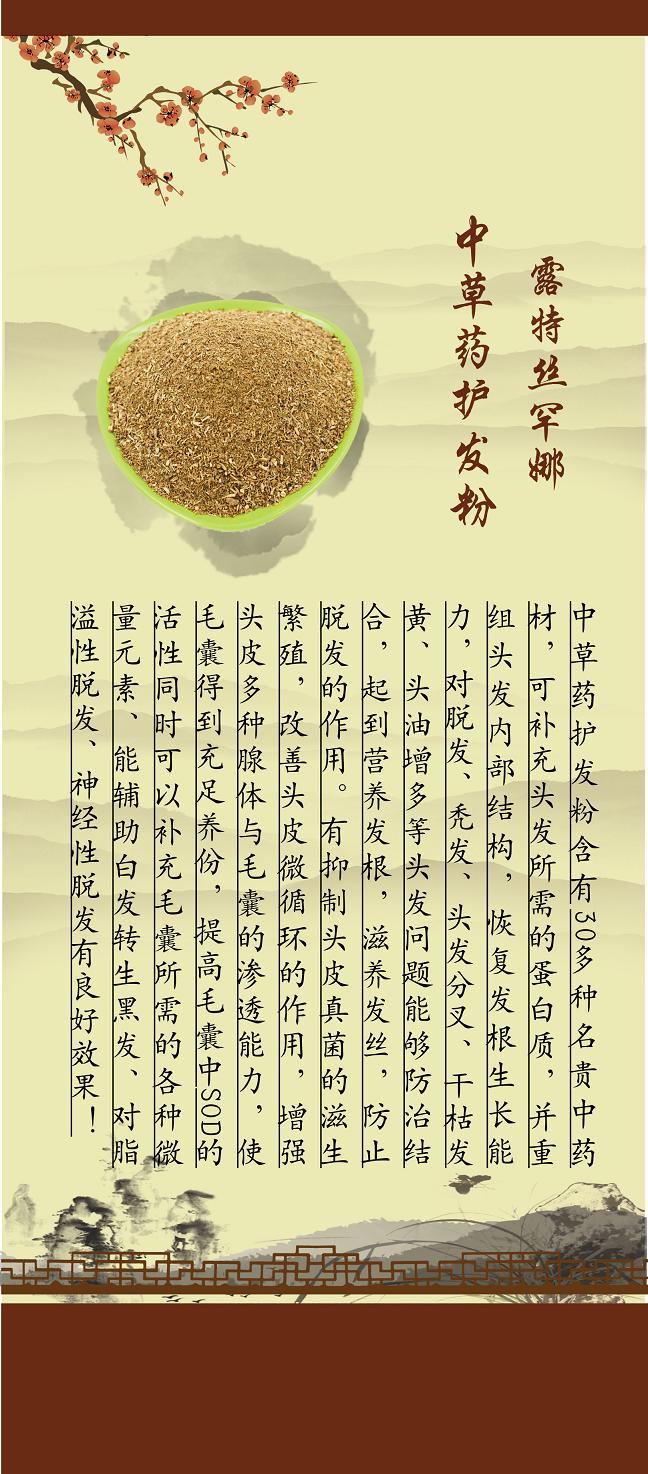 露特丝罕娜
中草药护发粉
中草药护发粉含有30多种名贵中药
材，可补充头发所需的蛋白质，并重
组头发内部结构，恢复发根生长能
力，对脱发、秃发、头发分叉、干枯发
黄、头油增多等头发问题能够防治结
合，起到营养发根，滋养发丝，防止
脱发的作用。有抑制头皮真菌的滋生
繁殖，改善头皮微循环的作用，增强
头皮多种腺体与毛囊的渗透能力，使
毛囊得到充足养份，提高毛囊中SOD的
活性同时可以补充毛囊所需的各种微
量元素、能辅助白发转生黑发、对脂
溢性脱发、神经性脱发有良好效果！